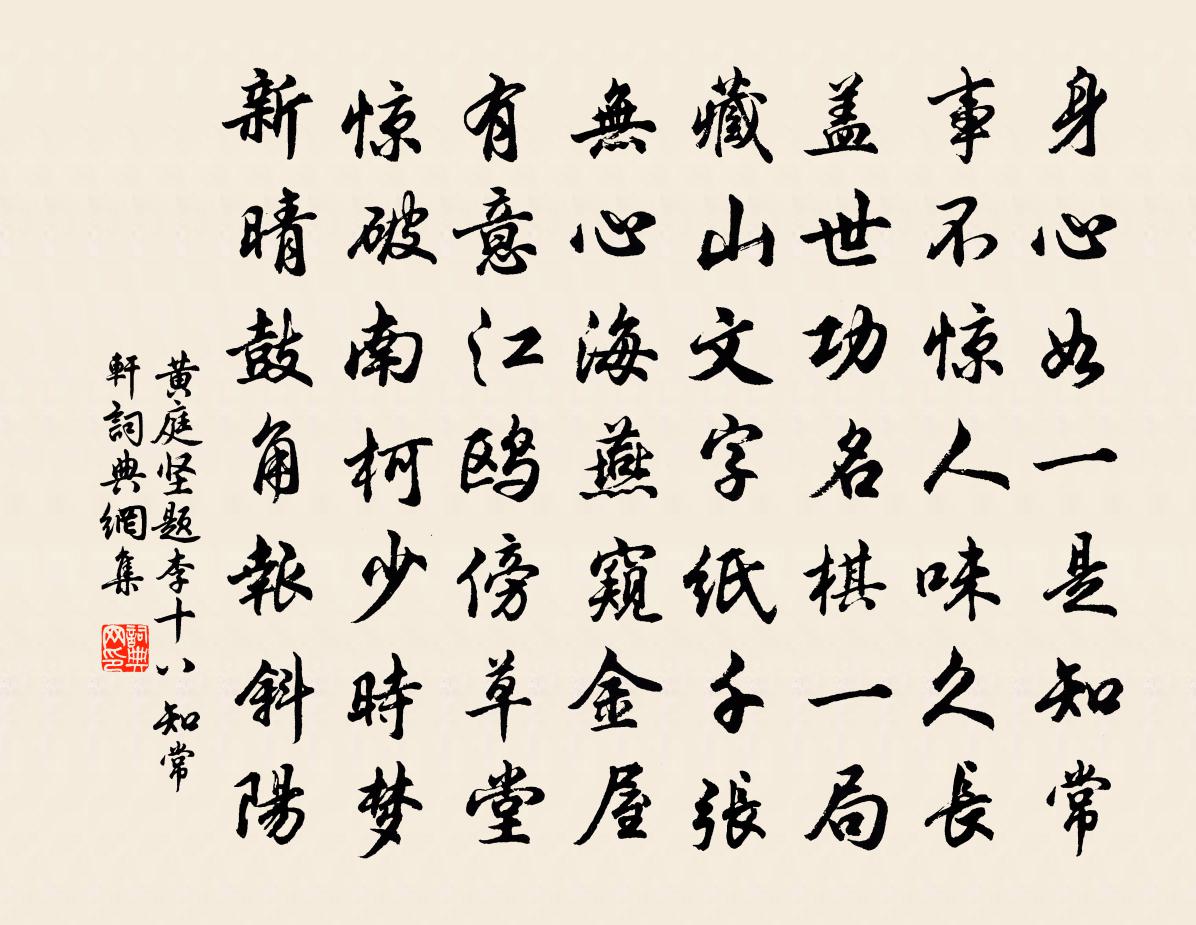 身心如一是知常
事不惊人味久長
盖世功名棋一局
藏山文字纸千張
無心海燕窺金屋
有意江鸥傍草堂
惊破南柯少時梦
新晴鼓角報斜陽
黄庭坚題李十八知常
軒詞典網集
詞典
网印